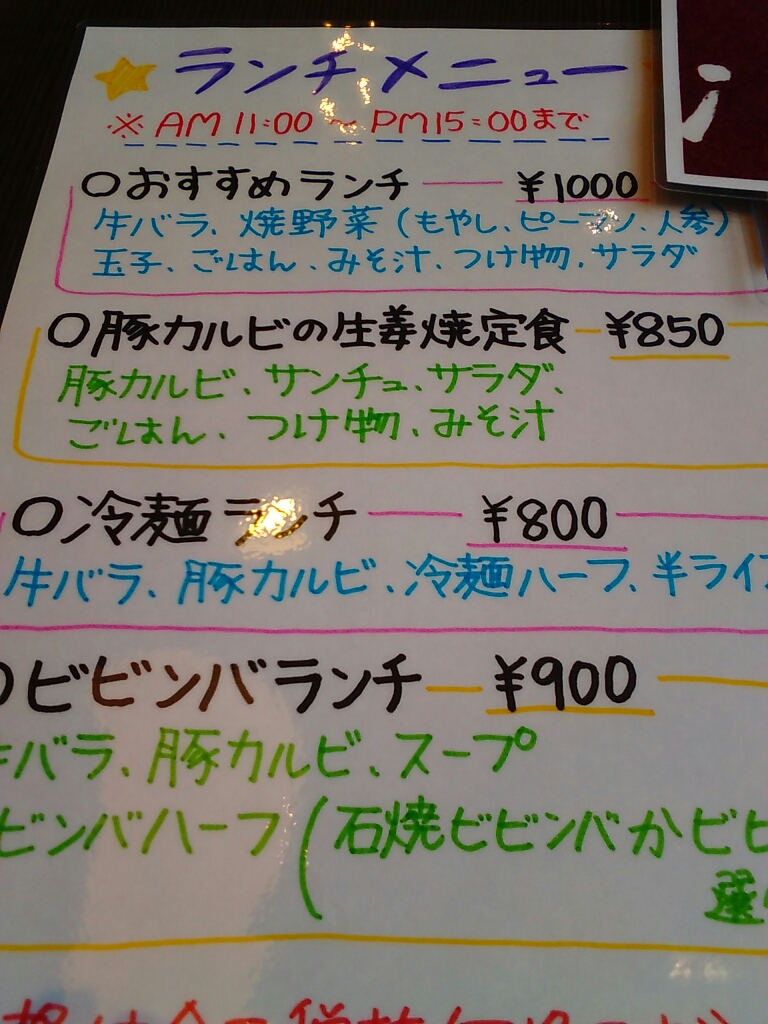 ランチメニュー
※ AM 11:00 ~ PM15:00まで
○おすすめランチ ¥1000
牛バラ、焼野菜(もやし、ピーマン、人参)
玉子、ごはん、みそ汁、つけ物、サラダ
○豚カルビの生姜焼定食 ¥850
豚カルビ、サンチュ、サラダ、
ごはん、つけ物、みそ汁
○冷麺ランチ ¥800
牛バラ、豚カルビ、冷麺ハーフ、半ライス
○ビビンバランチ ¥900
牛バラ、豚カルビ、スープ
ビンバハーフ(石焼ビビンバかビビ
選